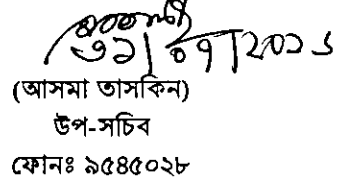 ৩১/০৭/২০১১
(আসমা তাসকিন)
উপ-সচিব
ফোনঃ ৯৫৪৫০২৮